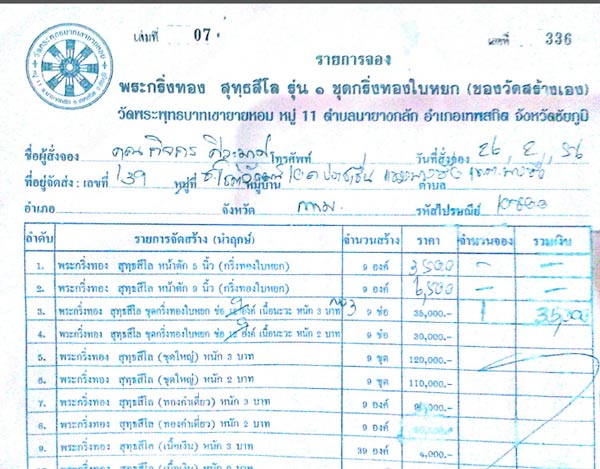 เล่มที่ 07 เลขที่ 336
รายการจอง
พระกริ่งทอง สุทฺธสีโล รุ่น ๑ ชุดกริ่งทองใบหยก (ของวัดสร้างเอง)
วัดพระพุทธบาทเขายายหอม หมู่ 11 ตำบลนายางกลัก อำเภอเทพสถิต จังหวัดชัยภูมิ
ชื่อผู้สั่งจอง คุณ โทรศัพท์ วันที่สั่งจอง 26, 2, 56
ที่อยู่จัดส่ง : เลขที่ 139 หมู่ที่ หมู่บ้าน ตำบล
อำเภอ จังหวัด กทม. รหัสไปรษณีย์
ลำดับ รายการจัดสร้าง (นำฤกษ์) จำนวนสร้าง ราคา จำนวนจอง รวมเงิน
1. พระกริ่งทอง สุทฺธสีโล หน้าตัก 5 นิ้ว (กริ่งทองใบหยก) 9 องค์ 3,500 - -
2. พระกริ่งทอง สุทฺธสีโล หน้าตัก 9 นิ้ว (กริ่งทองใบหยก) 9 องค์ 6,500 - -
3. พระกริ่งทอง สุทฺธสีโล ชุดกริ่งทองใบหยก ช่อ 9 องค์ เนื้อนะวะ หนัก 3 บาท 9 ช่อ 35,000.- 1 35,000
4. พระกริ่งทอง สุทฺธสีโล ชุดกริ่งทองใบหยก ช่อ 9 องค์ เนื้อนะวะ หนัก 2 บาท 9 ช่อ 30,000.-
5. พระกริ่งทอง สุทฺธสีโล (ชุดใหญ่) หนัก 3 บาท 9 ชุด 120,000.-
6. พระกริ่งทอง สุทฺธสีโล (ชุดใหญ่) หนัก 2 บาท 9 ชุด 110,000.-
7. พระกริ่งทอง สุทฺธสีโล (ทองคำเดี่ยว) หนัก 3 บาท 9 องค์
8. พระกริ่งทอง สุทฺธสีโล (ทองคำเดี่ยว) หนัก 2 บาท 9 องค์
9. พระกริ่งทอง สุทฺธสีโล (เนื้อเงิน) หนัก 3 บาท 39 องค์ 4,000.-